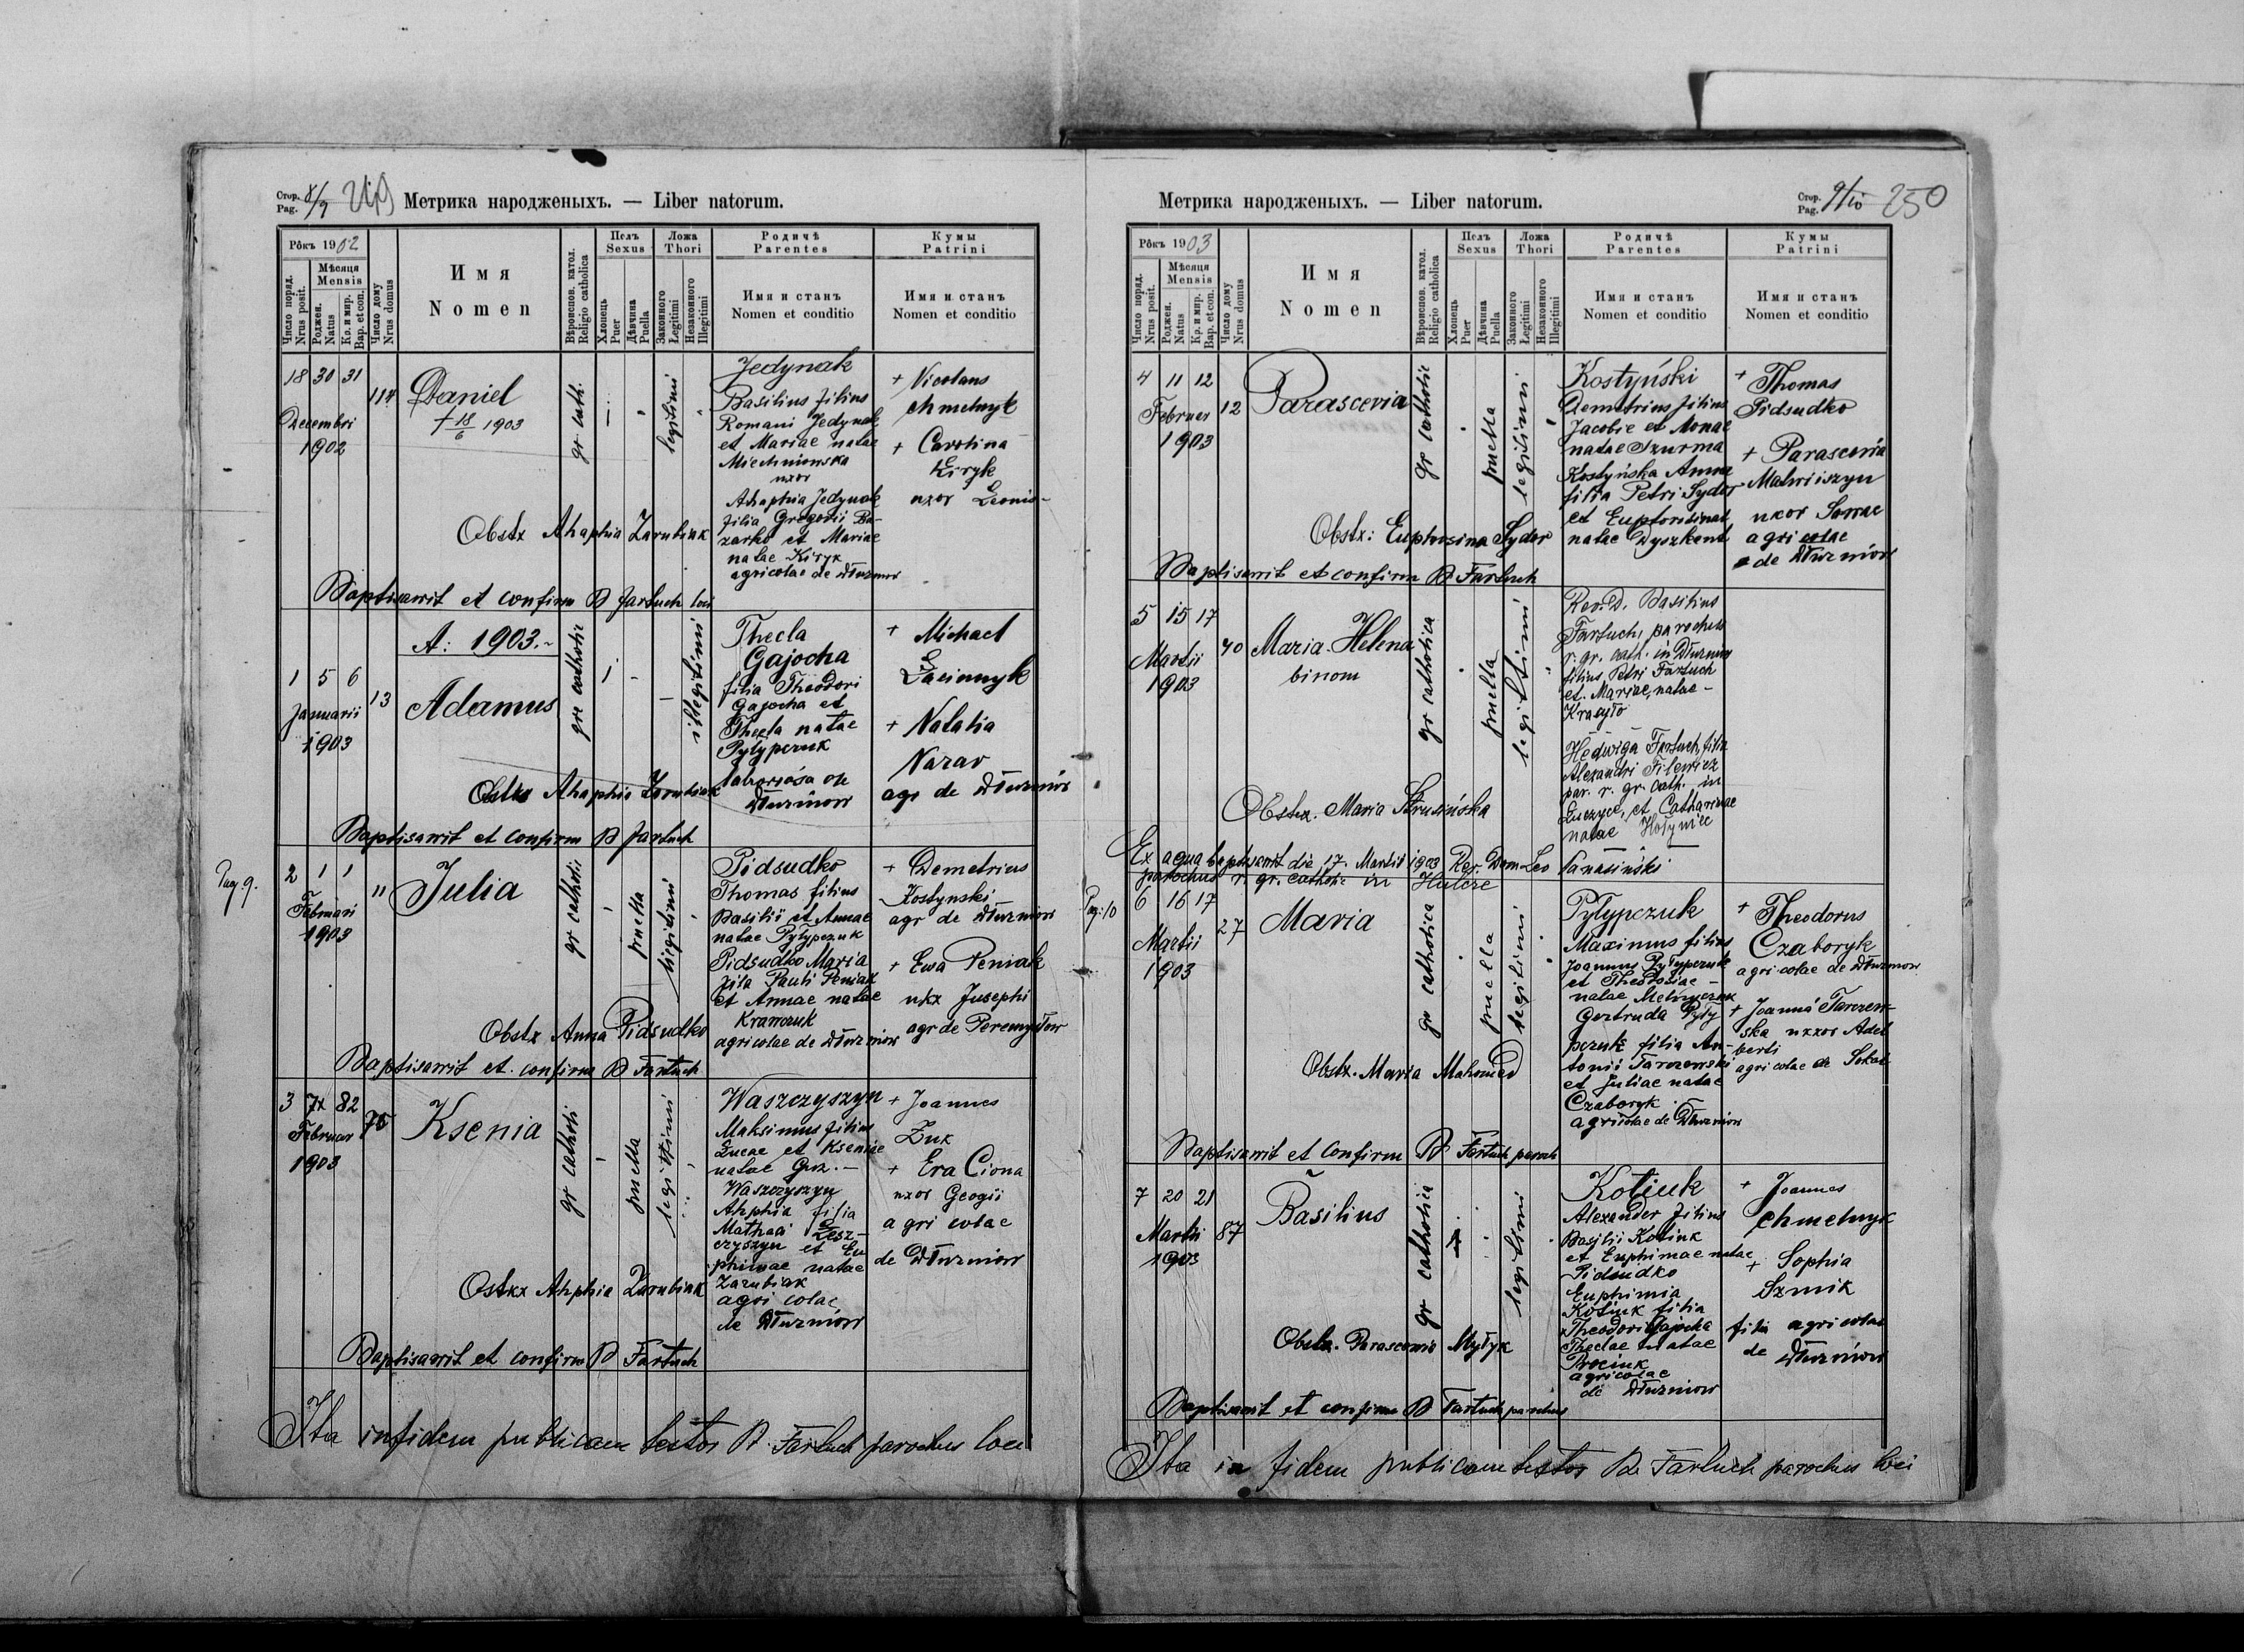 Стор. Pag. 8/9
Метрика народженыхъ. — Liber natorum.
Рôкъ 1902
Число поряд. Nrus posit.
Мѣсяця Mensis
Роджен. Natus
Кр. и мир. Bap. et con.
Число дому Nrus domus
Имя
Nomen
Вѣроиспов. катол. Religio catholica
Полъ Sexus
Хлопець Puer
Дѣвчина Puella
Ложа Thori
Законного Legitimi
Незаконного Illegitimi
Родичѣ
Parentes
Имя и станъ
Nomen et conditio
Кумы
Patrini
Имя и станъ
Nomen et conditio
18 30 31
Decembri
1902
114
Daniel
† 18/6 1903
gr cath.
legitimi
Jedynak
Basilius filius
Romani Jedynak
et Mariae natae
Miechniowska
uxor
Ahaphia Jedynak
filia Gregorii Ba-
zarko et Mariae
natae Kiryk
agricolae de Dłużniow
+ Nicolaus
Chmelnyk
+ Carolina
Kiryk
uxor Leonis-
Obstx Ahaphia Zarubiak
Baptisawit et confirm B Fartuch loci
A: 1903.
1 5 6
Januarii
1903
13
Adamus
gre catholic
illegitimi
Thecla
Gajocha
filia Theodori
Gajocha et
Thecla natae
Pyłypczuk
laboriosa de
Dłużniow
+ Michael
+ Natalia
Nazar
agr de Dłużniów
Obstx Ahaphia Zarubiak
Baptisawit et confirm B Fartuch
Pag. 9.
2 1 1
Februari
1903
"
Julia
gr catholi
puella
legitimi
Pidsudko
Thomas filius
Basilii et Annae
natae Pyłypczuk
Pidsudko Maria
filia Pauli Peniak
et Annae natae
Krawczuk
agricolae de Dłużniow
+ Demetrius
Kostynski
agr de Dłużniow
+ Ewa Peniak
uxx Jusephi
agr de Peremysłow
Obstx Anna Pidsudko
Baptisawit et confirm B Fartuch
3 7x 82
Februar
1903
Ksenia
gr catholi
puella
legitimi
Waszczyszyn
Maksimus filius
Lucae et Kseniae
natae Guz. —
Waszczyszyn
Ahphia filia
Mathaei Lesz-
czyszyn et Eu
phimae natae
Zarubiak
agricolae
de Dłużniow
+ Joannes
Żuk
+ Era Ciona
uxor Geogii
agricolae
de Dłużniow
Ostxx Ahphia Zarubiak
Baptisawit et confirm B Fartuch
Ita in fidem publicam testor B. Fartuch parochus loci
Метрика народженыхъ. — Liber natorum.
Стор. Pag. 9/10 250
Рôкъ 1903
Число поряд. Nrus posit.
Мѣсяця Mensis
Роджен. Natus
Кр. и мир. Bap. et con.
Число дому Nrus domus
Имя
Nomen
Вѣроиспов. катол. Religio catholica
Полъ Sexus
Хлопець Puer
Дѣвчина Puella
Ложа Thori
Законного Legitimi
Незаконного Illegitimi
Родичѣ
Parentes
Имя и станъ
Nomen et conditio
Кумы
Patrini
Имя и станъ
Nomen et conditio
4 11 12
Februar
1903
12
Parascevia
gr catholic
puella
legitimi
Kostyński
Demetrius filius
Jacobie et Annae
natae Szurma
Kostyńska Anna
filia Petri Sydor
et
natae Dyszkant
+ Thomas
Pidsudko
+ Parascewia
Matwiiszyn
uxor Sawae
agricolae
de Dłużniow
Obstx: Euphrosina Sydor
Baptisawit et confirm B Fartuch
5 15 17
Martii
1903
40
Maria-Helena
binom
gr catholica
puella
legitimi
Rev. D. Basilius
Fartuch, parochus
r. gr. cath. in Dłużniow
filius Petri Fartuch
et Mariae, natae -
Krasyło
Hedwiga Fartuch, filia
Alexandri Filewicz
par. r. gr. cath. in
Łuczyce, et Catharinae
natae Hołyniec
Obstx. Maria Strusińska
Ex aqua baptisawit die 17. Martii 1903 Rev. Dom. Leo Panasiński
parochus r. gr. cathol. in Hulcze
Pag: 10
6 16 17
Martii
1903
27
Maria
gr catholica
puella
legitimi
Pyłypczuk
Maximus filius
Joannus Pyłypczuk
et Theodosiae -
natae Melnyczuk
Gertruda Pyły
pczuk filia An-
tonii Tarczewski
et Juliae natae
Czaboryk
agricolae de Dłużniow
+ Theodorus
Czaboryk
agricolae de Dłużniow
+ Joanna Tarczew-
ska uxxor Adal
berti
agricolae de Sokal
Obstx. Maria Mahomed
Baptisawit et confirm B Fartuch paroch
7 20 21
Martii
1903
87
Basilius
gr catholica
1
legitimi
Kotiuk
Alexander filius
Basilii Kotiuk
et Euphimae natae
Pidsudko
Euphimia
Kotiuk filia
Theodori Gajocha
Theclae natae
Prociuk
agricolae
de Dłużniow
+ Joannes
Chmelnyk
+ Sophia
Szmik
filia agricolae
de Dłużniow
Obstx. Parascewia Mytyk
Baptisawit et confirm B Fartuch parochus
Ita in fidem publicam testor Ba Fartuch parochus loci